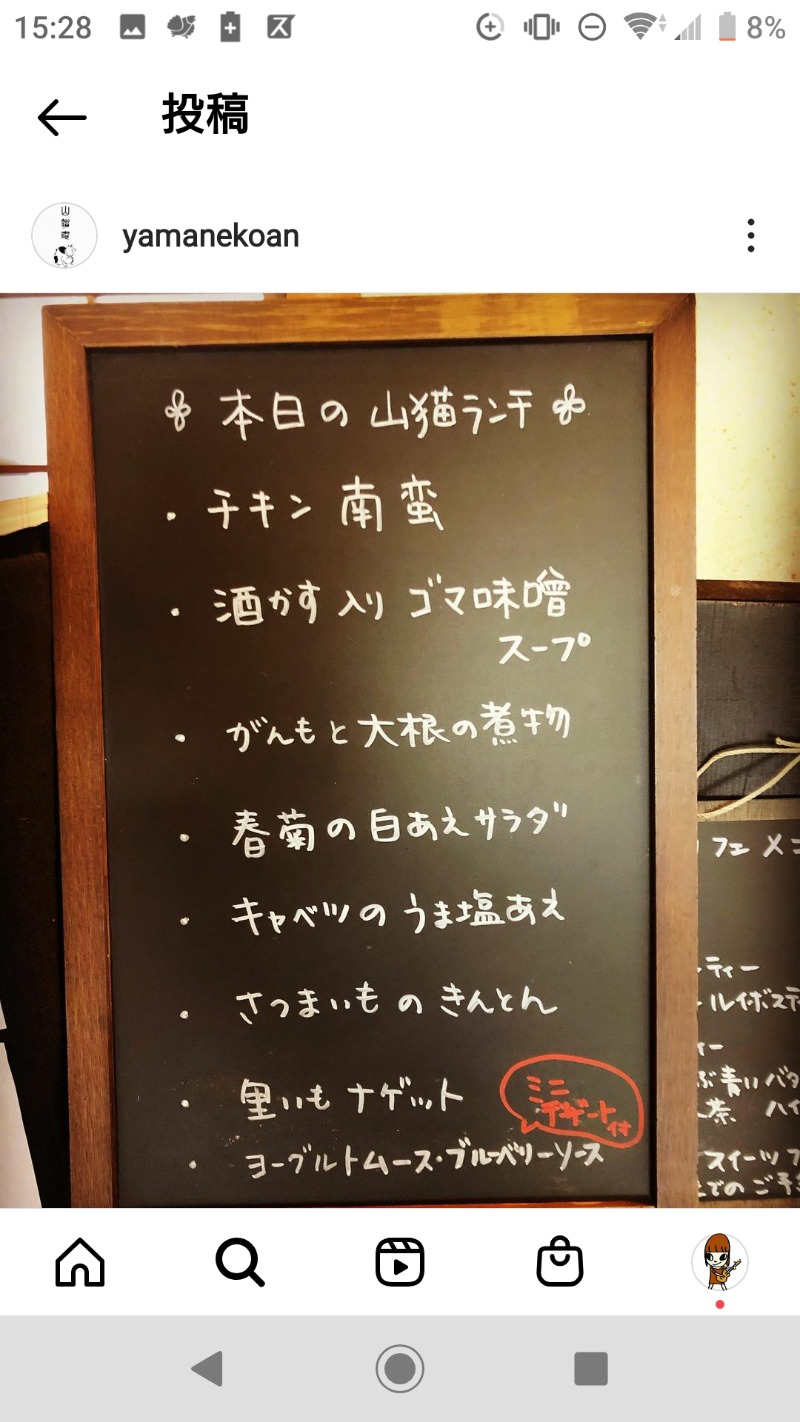 15:28
8%
投稿
山猫庵
yamanekoan
本日の 山猫ランチ
・チキン 南蛮
・酒かす入り ゴマ味噌
スープ
・がんもと大根の煮物
・春菊の白あえサラダ
・キャベツの うま塩あえ
・さつまいも の きんとん
・里いも ナゲット
ミニ
デザート付
・ヨーグルトムース・ブルーベリーソース
フェ メニ
ティー
ルイボステ
ィー
ぶ青いバタ
茶 ハイ
スイーツ
での ご予